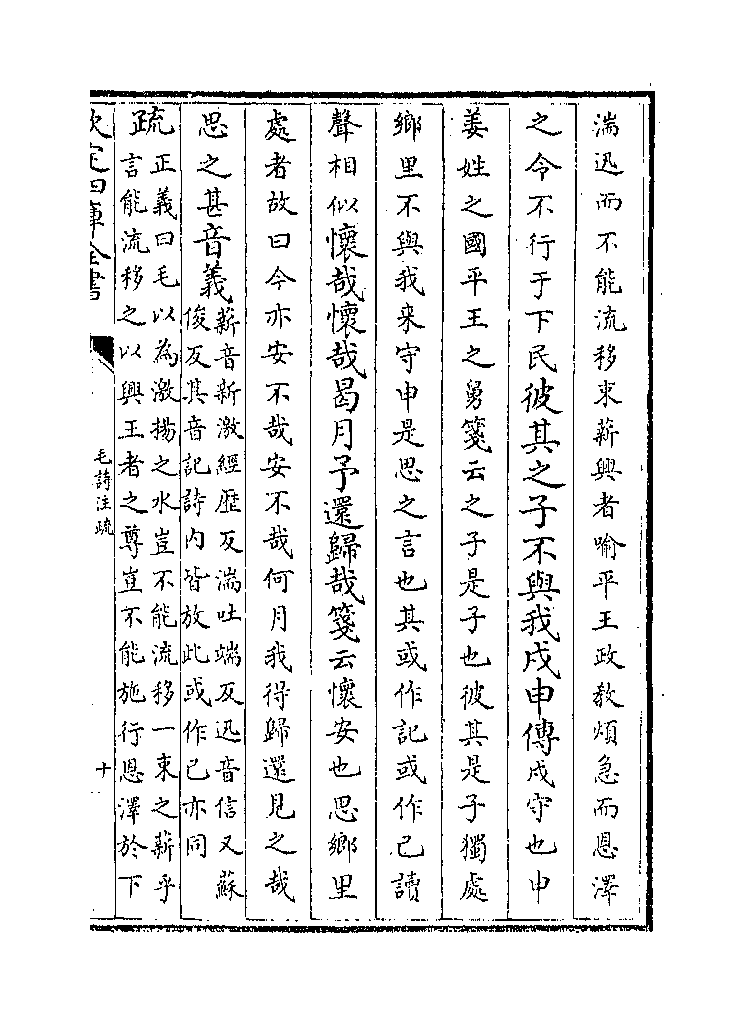 湍迅而不能流移束薪興者喻平王政教煩急而恩澤
之令不行于下民彼其之子不與我戍申傳戍守也申
姜姓之國平王之舅箋云之子是子也彼其是子獨處
鄉里不與我来守申是思之言也其或作記或作己讀
聲相似懷哉懷哉曷月予還歸哉箋云懷安也思鄉里
處者故曰今亦安不哉安不哉何月我得歸還見之哉
思之甚音義
薪音新激經歷反湍吐端反迅音信又蘇
俊反其音記詩内皆放此或作己亦同
疏
正義曰毛以為激揚之水豈不能流移一束之薪乎
言能流移之以興王者之尊豈不能施行恩澤於下
欽定四庫全書
毛詩注疏
十